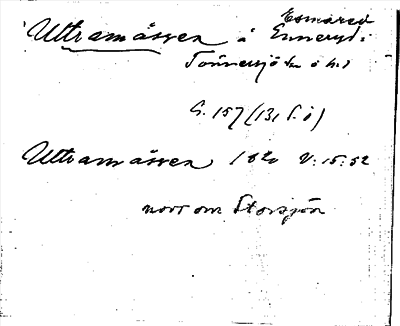 Uttramåssen å Esmared
Enneryd:
Tönnersjö hd i h.l
G. 157 (131 S.ö)
Uttramåssen 1820 V: 15:52
norr om Storsjön